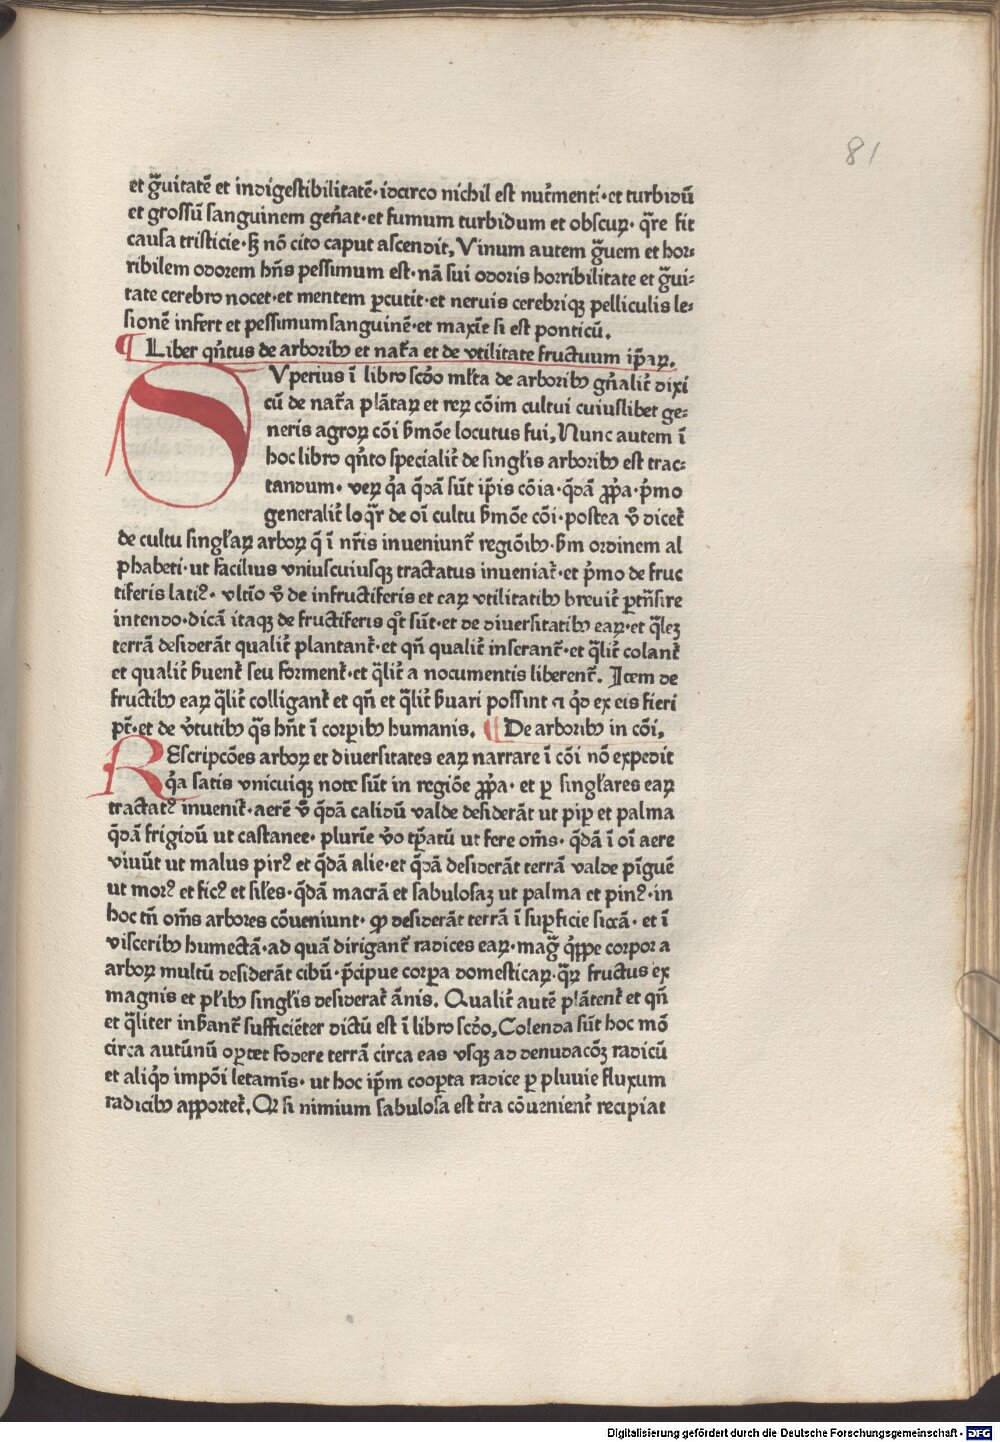 81
et gͣuitatē et indigestibilitatē· idcirco nichil est nut̃menti·et turbidū
et grossū sanguinem geñat·et fumum turbidum et obscuꝝ· qͣre fit
causa tristicie·sꝫ nō cito caput ascendit, Vinum autem gͣuem et hor⸗
ribilem odorem hñs pessimum est·nā sui odoris horribilitate et gͣui⸗
tate cerebro nocet·et mentem ꝑcutit·et neruis cerebriqꝫ pelliculis le⸗
sionē infert et pessimum sanguinē·et maxīe si est ponticū.
¶ Liber qñtus de arboribꝰ et nat̃a et de vtilitate fructuum ip̄aꝝ.
SVperius ī libro scd̄o ml̃ta de arboribꝰ gñalit̃ dixi
cū de nat̃a plātaꝝ et reꝝ cōim cultui cuiuslibet ge⸗
neris agroꝝ cōi ẜmōe locutus fui, Nunc autem ī
hoc libro qñto specialit̃ de singl̃is arboribꝰ est trac⸗
tandum· veꝝ qͥa qͣdā sūt ip̄is cōia·qͣdā ꝓpͥa·pͥmo
generalit̃ loqͥr de oī cultu ẜmōe cōi·postea ṽo dicet̃
de cultu singl̃aꝝ arboꝝ q̄ ī nr̃is inueniunt̃ regiōibꝰ·ẜm ordinem al
phabeti·ut facilius vniuscuiusqꝫ tractatus inueniat̃·et pͥmo de fruc
tiferis latiꝰ· vltīo ṽo de infructiferis et eaꝝ vtilitatibꝰ breuit̃ ꝑtñsire
intendo·dicā itaqꝫ de fructiferis qͦt sūt·et de diuersitatibꝰ eaꝝ·et qͣleꝫ
terrā desiderāt qualit̃ plantant̃·et qñ qualit̃ inserant̃·et qͣlit̃ colant̃
et qualit̃ ẜuent̃ seu forment̃·et qͣlit̃ a nocumentis liberent̃. Item de
fructibꝰ eaꝝ qͣlit̃ colligant̃ et qñ et qͣlit̃ ẜuari possint ⁊ qͥd ex eis fieri
pt̃·et de v̓tutibꝰ qͣs hñt ī corꝑibꝰ humanis. ¶ De arboribꝰ in cōi,
REscripcōes arboꝝ et diuersitates eaꝝ narrare ī cōi nō expedit
qͥa satis vnicuiqꝫ note sūt in regiōe ꝓpͥa· et ꝑ singl̃ares eaꝝ
tractatꝰ inuenit̃·aerē ṽo qͣdā calidū valde desiderāt ut piꝑ et palma
qͣdā frigidū ut castanee· plurīe ṽo tꝑatū ut fere om̄s· qͣdā ī oī aere
viuūt ut malus pirꝰ et qͣdā alie·et qͣdā desiderāt terrā valde pīguē
ut morꝰ et ficꝰ et sil̃es·qͣdā macrā et sabulosaꝫ ut palma et pinꝰ·in
hoc tn̄ om̄s arbores cōueniunt· ꝙ desiderāt terrā ī suꝑficie siccā· et ī
visceribꝰ humectā·ad quā dirigant̃ radices eaꝝ·magͣ qͥppe corpora
arboꝝ multū desiderāt cibū·p̄cipue corꝑa domesticaꝝ·qͣꝝ fructus ex
magnis et pl̃ibꝰ singl̃is desiderat̃ ānis. Qualit̃ autē plātent̃ et qñ
et qͣliter inẜant̃ sufficiēter dictū est ī libro scd̄o, Colenda sūt hoc mō
circa autūnū oꝑtet fodere terrā circa eas vsqꝫ ad denudacōꝫ radicū
et aliqͥd impōi letamīs· ut hoc ip̄m cooꝑta radice ꝑ pluuie fluxum
radicibꝰ apportet̃. Qꝫ si nimium sabulosa est t̃ra cōuenient̃ recipiat
Digitalisierung gefördert durch die Deutsche Forschungsgemeinschaft - DFG